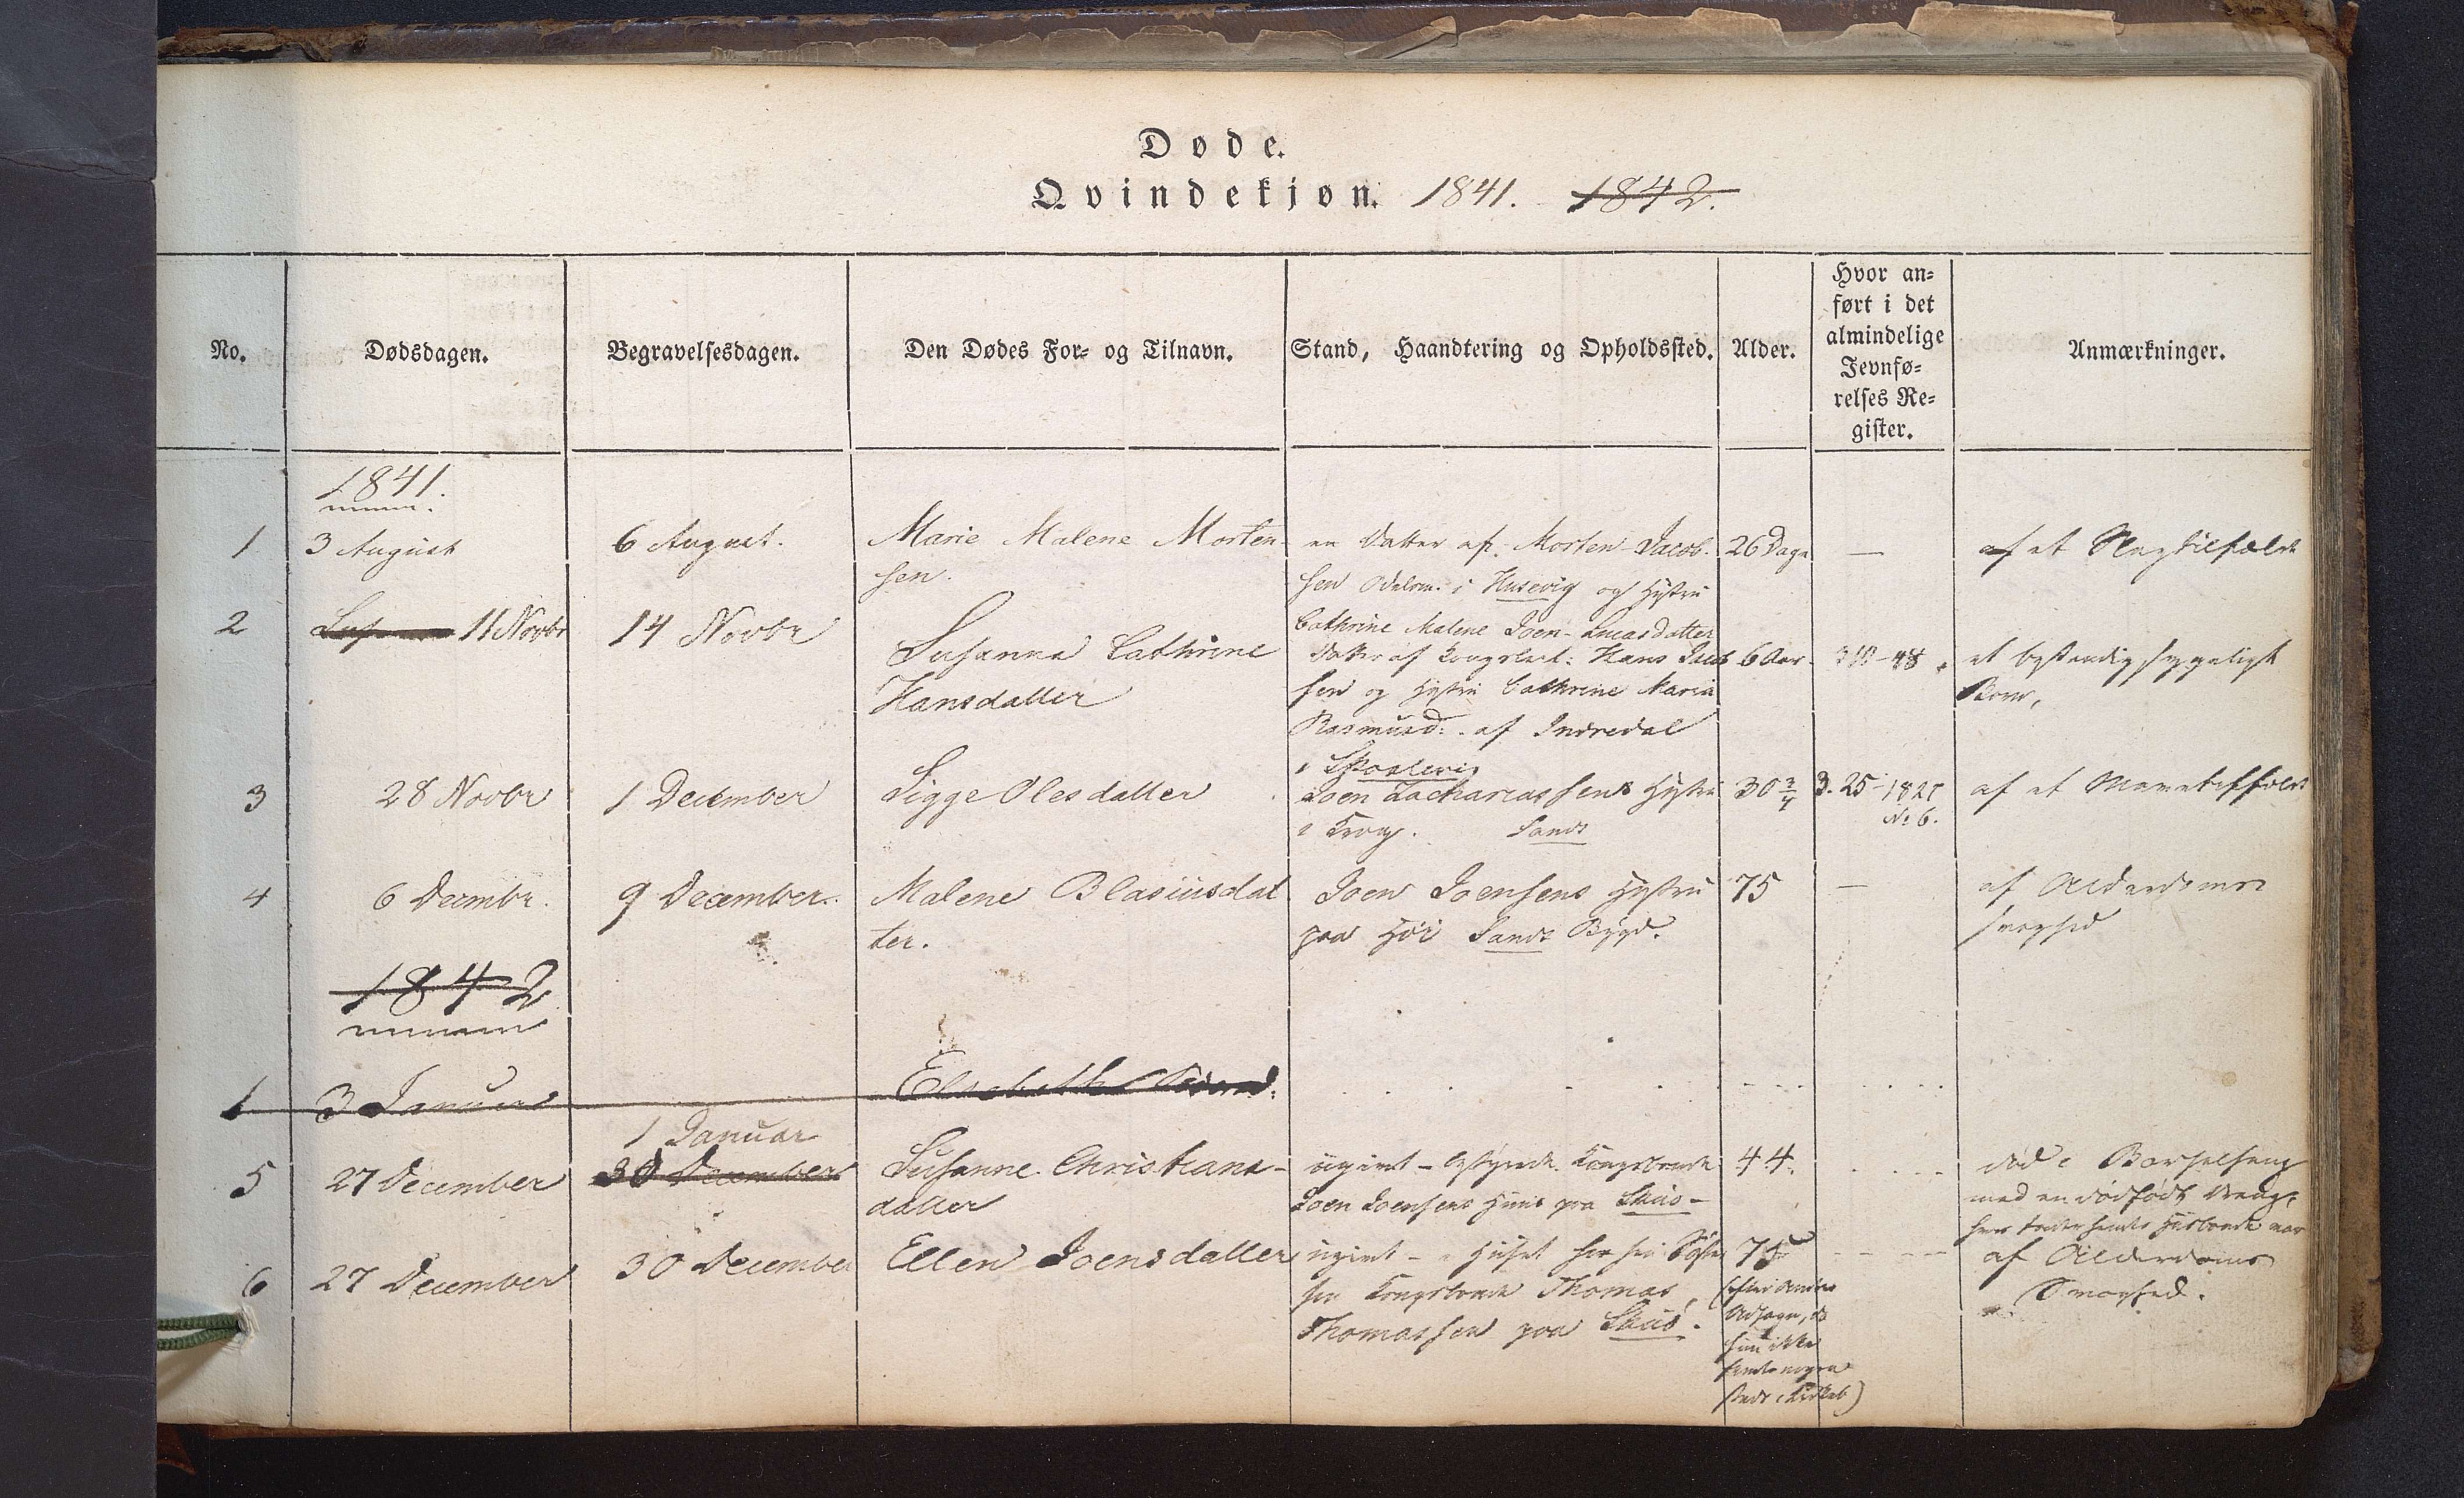 Døde.
Qvindekjøn. 1841. 1842.
No.
Dødsdagen.
Begravelsesdagen.
Den Dødes For- og Tilnavn.
Stand, Haandtering og Opholdssted.
Alder.
Hvor an-
ført i det
almindelige
Jevnfø-
relses Re-
gister.
Anmærkninger.
1841.
1
3 August
6 August.
Marie Malene Morten-
sen.
en Datter af Morten Jacob-
sen Odelsm: i Husevig og Hustru
Cathrine Malene Joen-Lucasdatter
26 Dage
—
af et Slagtilfælde
2
11 Novbr
14 Novbr
Susanna Cathrine
Hansdatter
Datter af Hans Jacob
sen og Hustru Cathrine Maria
Rasmusd: af Indredal
i Skaalevig
6 Aar
et bestandig sygeligt
Barn,
3
28 Novbr
1 December
Sigge Olesdatter
Joen Zachariassens Hustru
i Krog. Sands
30 3/4
3. 25 - 182
No 6.
af et
4
6 Decembr.
9 December.
Malene Blasiusdat
ter.
Joen Joensens Hustru
paa Høi Sands Bygd.
75
—
af Alderdoms
svaghed
1842
1
3 Januar
Elsebeth
5
27 December
1 Januar
30 December
Susanne Christians-
datter
ugivt - Kongsbonde
Joen Joensens Huus paa Skuø -
44.
død i Barselseng
med en dødfødt Dreng,
6
27 December
30 December
Ellen Joensdatter
ugivt - i Huset hos sin
Kongsbonde Thomas
Thomassen paa Skuø.
75
(efter Andres
Udsagn, da
hun ikke
af Alderdoms
Svaghed.